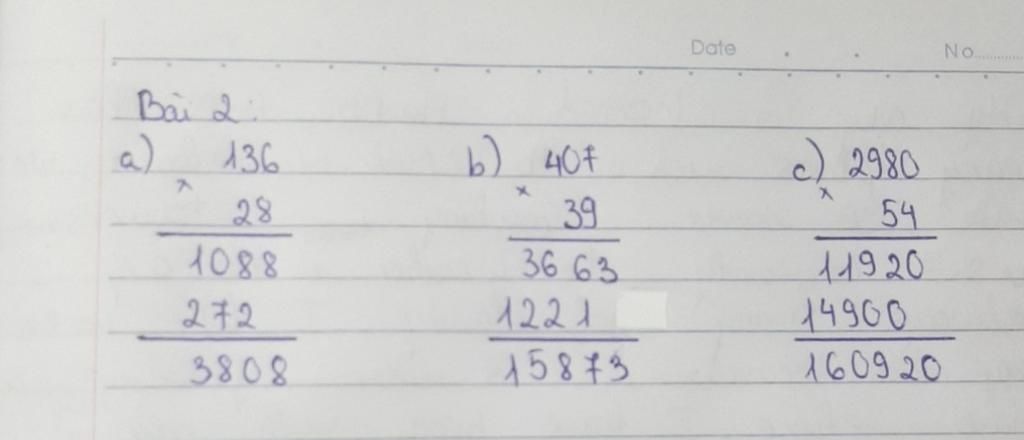 Date . . No.........
Bài 2:
a) 136 b) 407 c) 2980
× × ×
28 39 54
1088 3663 11920
272 1221 14900
3808 15873 160920